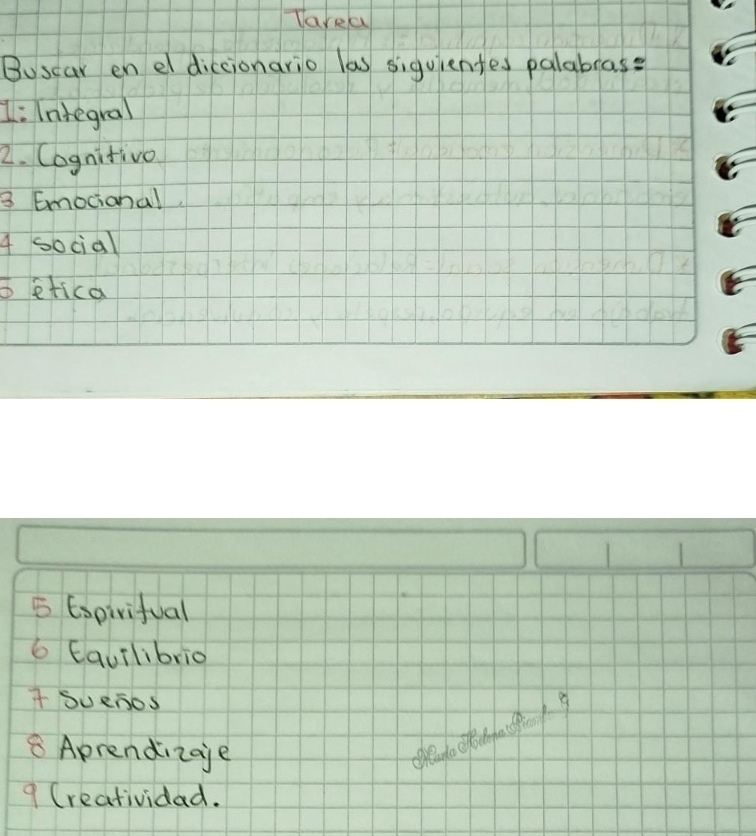 Tarea
Buscar en el diccionario las siguientes palabras:
1: Integral
2. Cognitivo
3 Emocional.
4 social
5 ética
5 Espiritual
6 Equilibrio
7 Sueños
8 Aprendizaje
9 Creatividad.